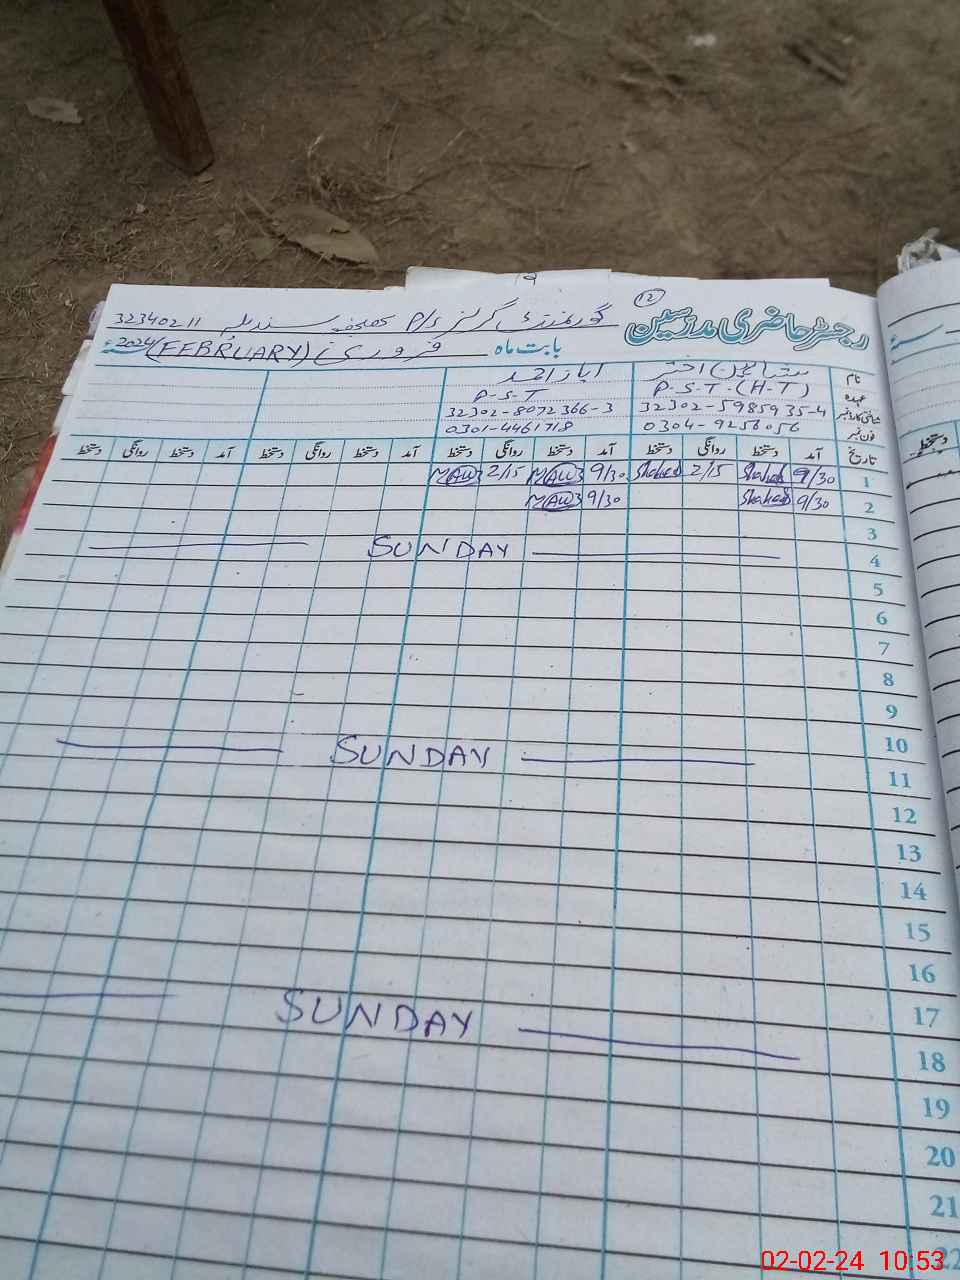 12
رجسٹر حاضری مدرسین
گورنمنٹ گرلز P/S 32340211
بابت ماہ فروری (FEBRUARY) 2024
نام اختر
عہدہ P.S.T.(H-T) P.S.T
شناختی کارڈ نمبر 32302-5985935-4 32302-8072366-3
فون نمبر 0304-9256056 0301-4461718
تاریخ آمد دستخط روانگی دستخط آمد دستخط روانگی دستخط آمد دستخط روانگی دستخط آمد دستخط روانگی دستخط
1 9/30 2/15 9/30 2/15
2 9/30 9/30
3
4 SUNDAY
5
6
7
8
9
10
11 SUNDAY
12
13
14
15
16
17
18 SUNDAY
19
20
21
22
02-02-24 10:53